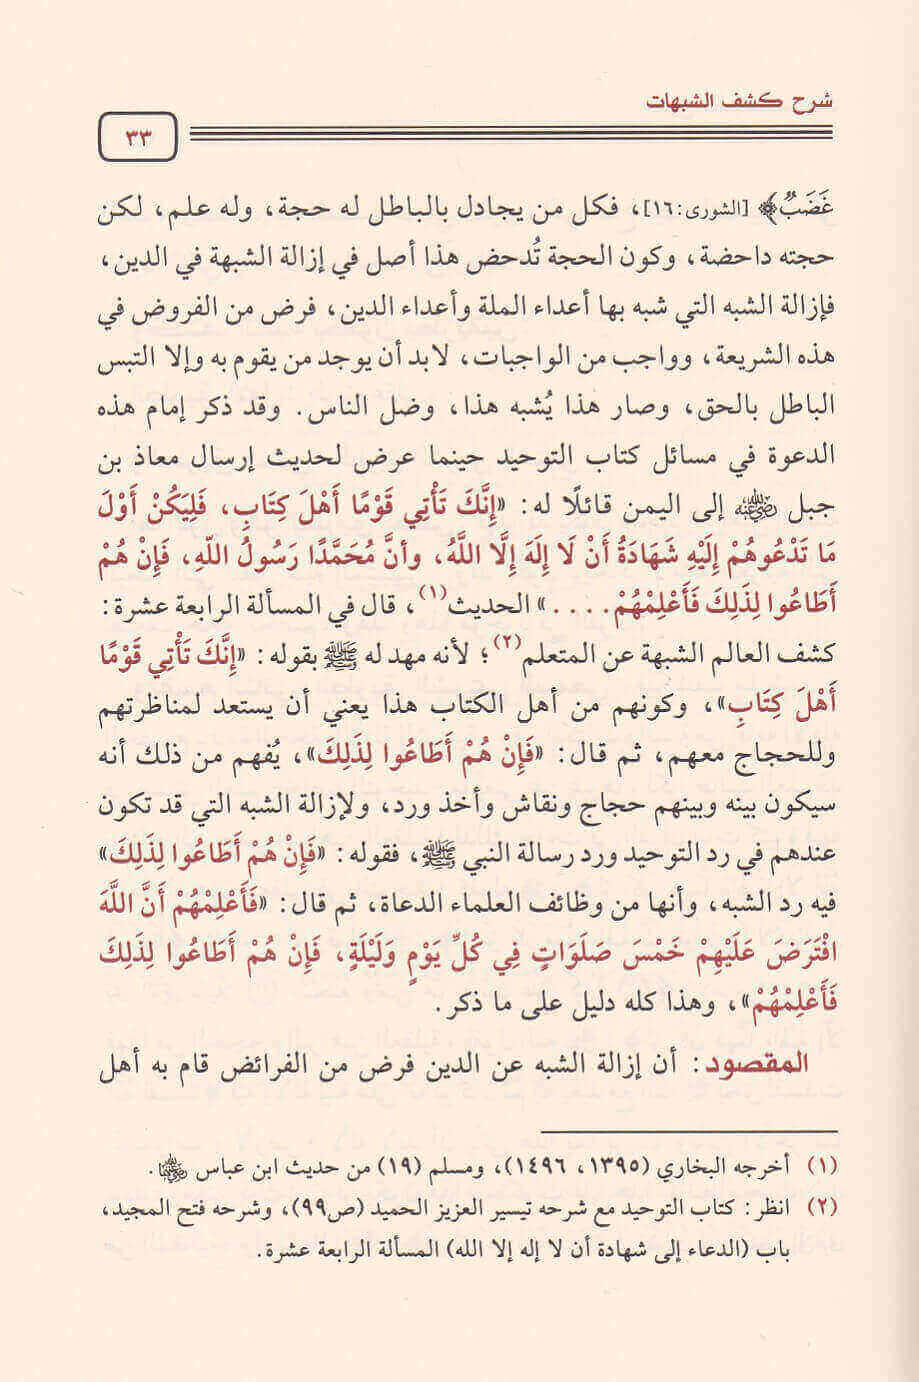 شرح كشف الشبهات
٣٣
غَضَبٌ﴾ [الشورى: ١٦]، فكل من يجادل بالباطل له حجة، وله علم، لكن
حجته داحضة، وكون الحجة تُدحض هذا أصل في إزالة الشبهة في الدين،
فإزالة الشبه التي شبه بها أعداء الملة وأعداء الدين، فرض من الفروض في
هذه الشريعة، وواجب من الواجبات، لابد أن يوجد من يقوم به وإلا التبس
الباطل بالحق، وصار هذا يُشبه هذا، وضل الناس. وقد ذكر إمام هذه
الدعوة في مسائل كتاب التوحيد حينما عرض لحديث إرسال معاذ بن
جبل رضي الله عنه إلى اليمن قائلًا له: «إِنَّكَ تَأْتِي قَوْمًا أَهْلَ كِتَابٍ، فَلِيَكُنْ أَوْلَ
مَا تَدْعُوهُمْ إِلَيْهِ شَهَادَةُ أَنْ لَا إِلَهَ إِلَّا اللَّهُ، وأنَّ مُحَمَّدًا رَسُولُ اللّهِ، فَإِنْ هُمْ
أَطَاعُوا لِذَلِكَ فَأَعْلِمْهُمْ....» الحديث(١)، قال في المسألة الرابعة عشرة:
كشف العالم الشبهة عن المتعلم(٢)؛ لأنه مهد له ﷺ بقوله: «إِنَّكَ تَأْتِي قَوْمًا
أَهْلَ كِتَابٍ»، وكونهم من أهل الكتاب هذا يعني أن يستعد لمناظرتهم
وللحجاج معهم، ثم قال: «فَإِنْ هُمْ أَطَاعُوا لِذَلِكَ»، يُفهم من ذلك أنه
سيكون بينه وبينهم حجاج ونقاش وأخذ ورد، ولإزالة الشبه التي قد تكون
عندهم في رد التوحيد ورد رسالة النبي ﷺ، فقوله: «فَإِنْ هُمْ أَطَاعُوا لِذَلِكَ»
فيه رد الشبه، وأنها من وظائف العلماء الدعاة، ثم قال: «فَأَعْلِمْهُمْ أَنَّ اللَّهَ
افْتَرَضَ عَلَيْهِمْ خَمْسَ صَلَوَاتٍ فِي كُلِّ يَوْمٍ وَلَيْلَةٍ، فَإِنْ هُمْ أَطَاعُوا لِذَلِكَ
فَأَعْلِمْهُمْ»، وهذا كله دليل على ما ذكر.
المقصود: أن إزالة الشبه عن الدين فرض من الفرائض قام به أهل
(١) أخرجه البخاري (١٣٩٥، ١٤٩٦)، ومسلم (١٩) من حديث ابن عباس رضي الله عنهما.
(٢) انظر: كتاب التوحيد مع شرحه تيسير العزيز الحميد (ص٩٩)، وشرحه فتح المجيد،
باب (الدعاء إلى شهادة أن لا إله إلا الله) المسألة الرابعة عشرة.